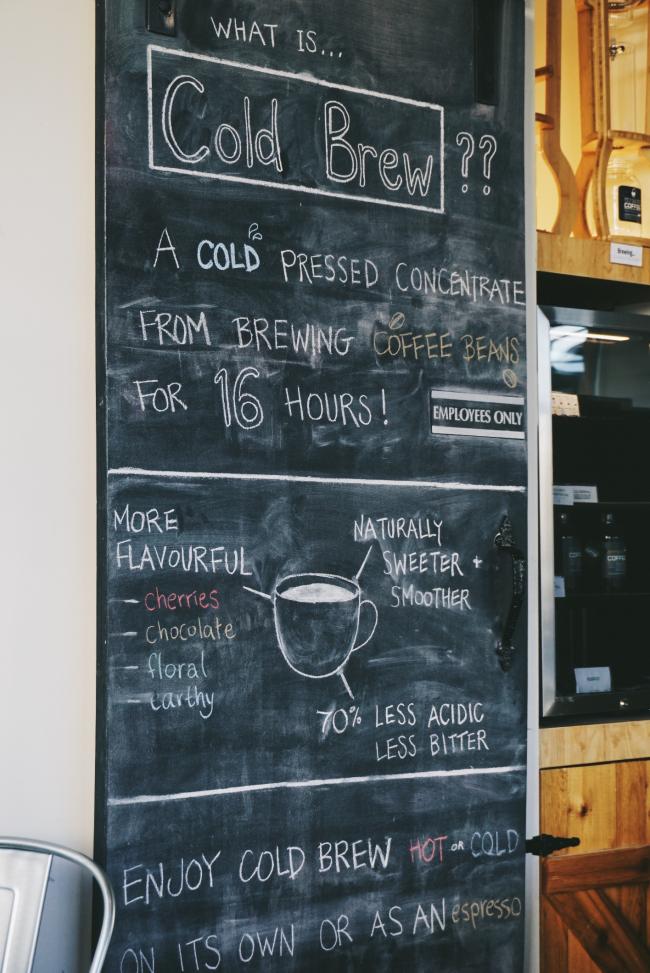 WHAT IS...
Cold Brew ??
A COLD PRESSED CONCENTRATE
FROM BREWING COFFEE BEANS
FOR 16 HOURS!
EMPLOYEES ONLY
MORE
FLAVOURFUL
– cherries
– chocolate
– floral
– earthy
NATURALLY
SWEETER +
SMOOTHER
70% LESS ACIDIC
LESS BITTER
ENJOY COLD BREW HOT OR COLD
ON ITS OWN OR AS AN espresso
COFFEE
Brewing...